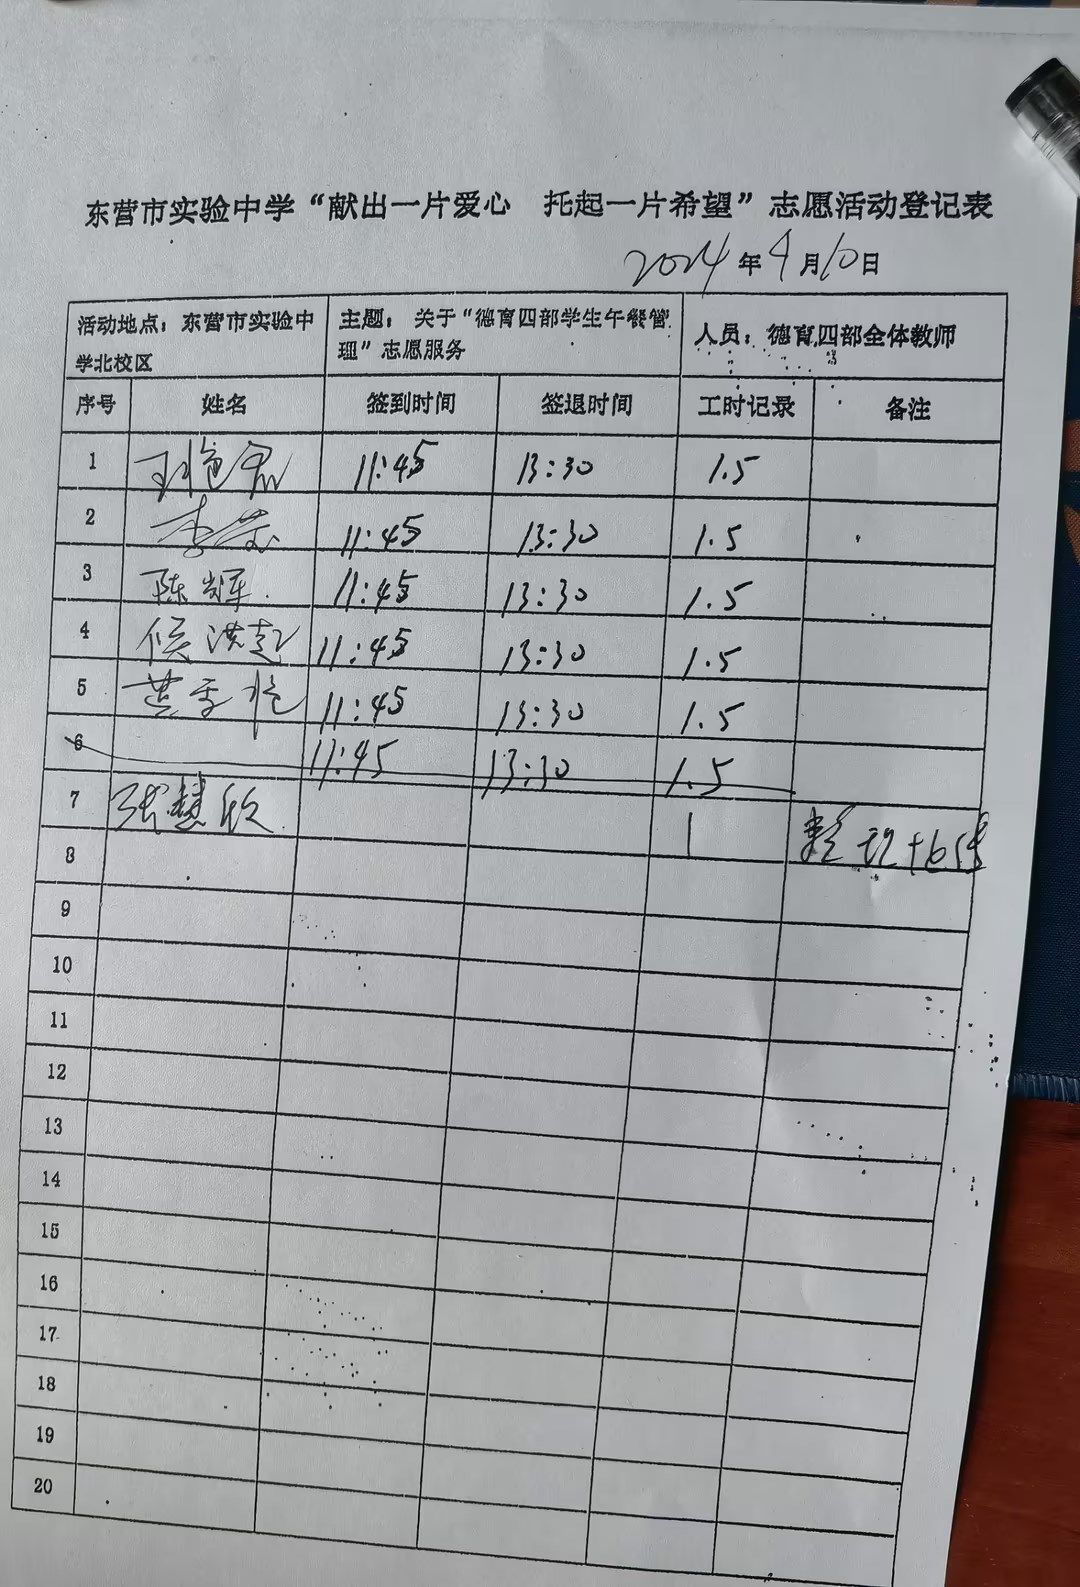 东营市实验中学“献出一片爱心 托起一片希望”志愿活动登记表
2024年9月10日
活动地点：东营市实验中 主题： 关于“德育四部学生午餐管 人员：德育四部全体教师
学北校区 理”志愿服务
序号 姓名 签到时间 签退时间 工时记录 备注
1 11:45 13:30 1.5
2 李荣 11:45 13:30 1.5
3 陈辉 11:45 13:30 1.5
4 侯洪起 11:45 13:30 1.5
5 黄 11:45 13:30 1.5
6 11:45 13:30 1.5
7 张慧欣 1
8
9
10
11
12
13
14
15
16
17
18
19
20